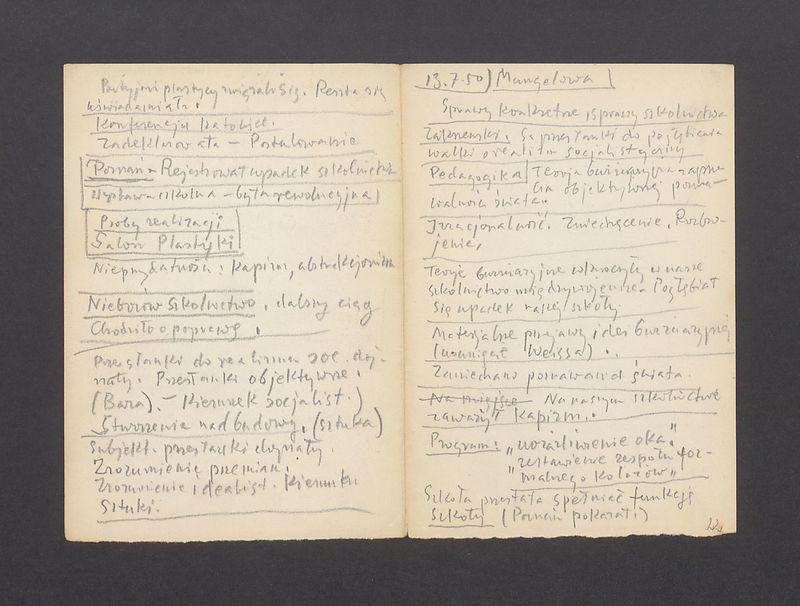 Partyjni plastycy Reszta się
uświadamiała.
Konferencja katowic.
Zadeklarowała – Postulowanie
Poznań – Rejestrował upadek szkolnictwa
Wystawa szkolna – była rewolucyjna
Próby realizacji
Salon Plastyki
Nieprzydatność: Kapizm, abstrakcjonizm
Nieborów szkolnictwo, dalszy ciąg
Chodziło o poprawę.
Przesłanki do realizmu soc. doj-
rzały. Przesłanki objektywne.
(Baza). – Kierunek socjalist.)
Stworzenia nadbudowy. (sztuka)
Subjekt. przesłanki dojrzały.
Zrozumienie przemian.
Zrozumienie idealist. kierunku
Sztuki.
13.7.50) Mangelowa
Sprawy konkretne, sprawy szkolnictwa
Są przesłanki do pogłębienia
walki o realizm socjalistyczny
Pedagogika Teoria burżuazyjna zaprze-
cza objektywnej pozna-
walności świata.
Irracjonalność. Zniechęcenie, Rozbro-
jenie,
Teorje burżuazyjne wkroczyły w nasze
szkolnictwo międzywojenne. Pogłębiał
się upadek naszej szkoły.
Materjalne przejawy idei burżuazyjnej
Weissa).
Zaniechano poznawania świata.
Na miejsce Na naszym szkolnictwie
zaważył Kapizm.
Program: „uwrażliwienie oka"
"zestawienie zespołu for-
malnego kolorów"
Szkoła przestała spełniać funkcje
Szkoły (Poznań pokazał)